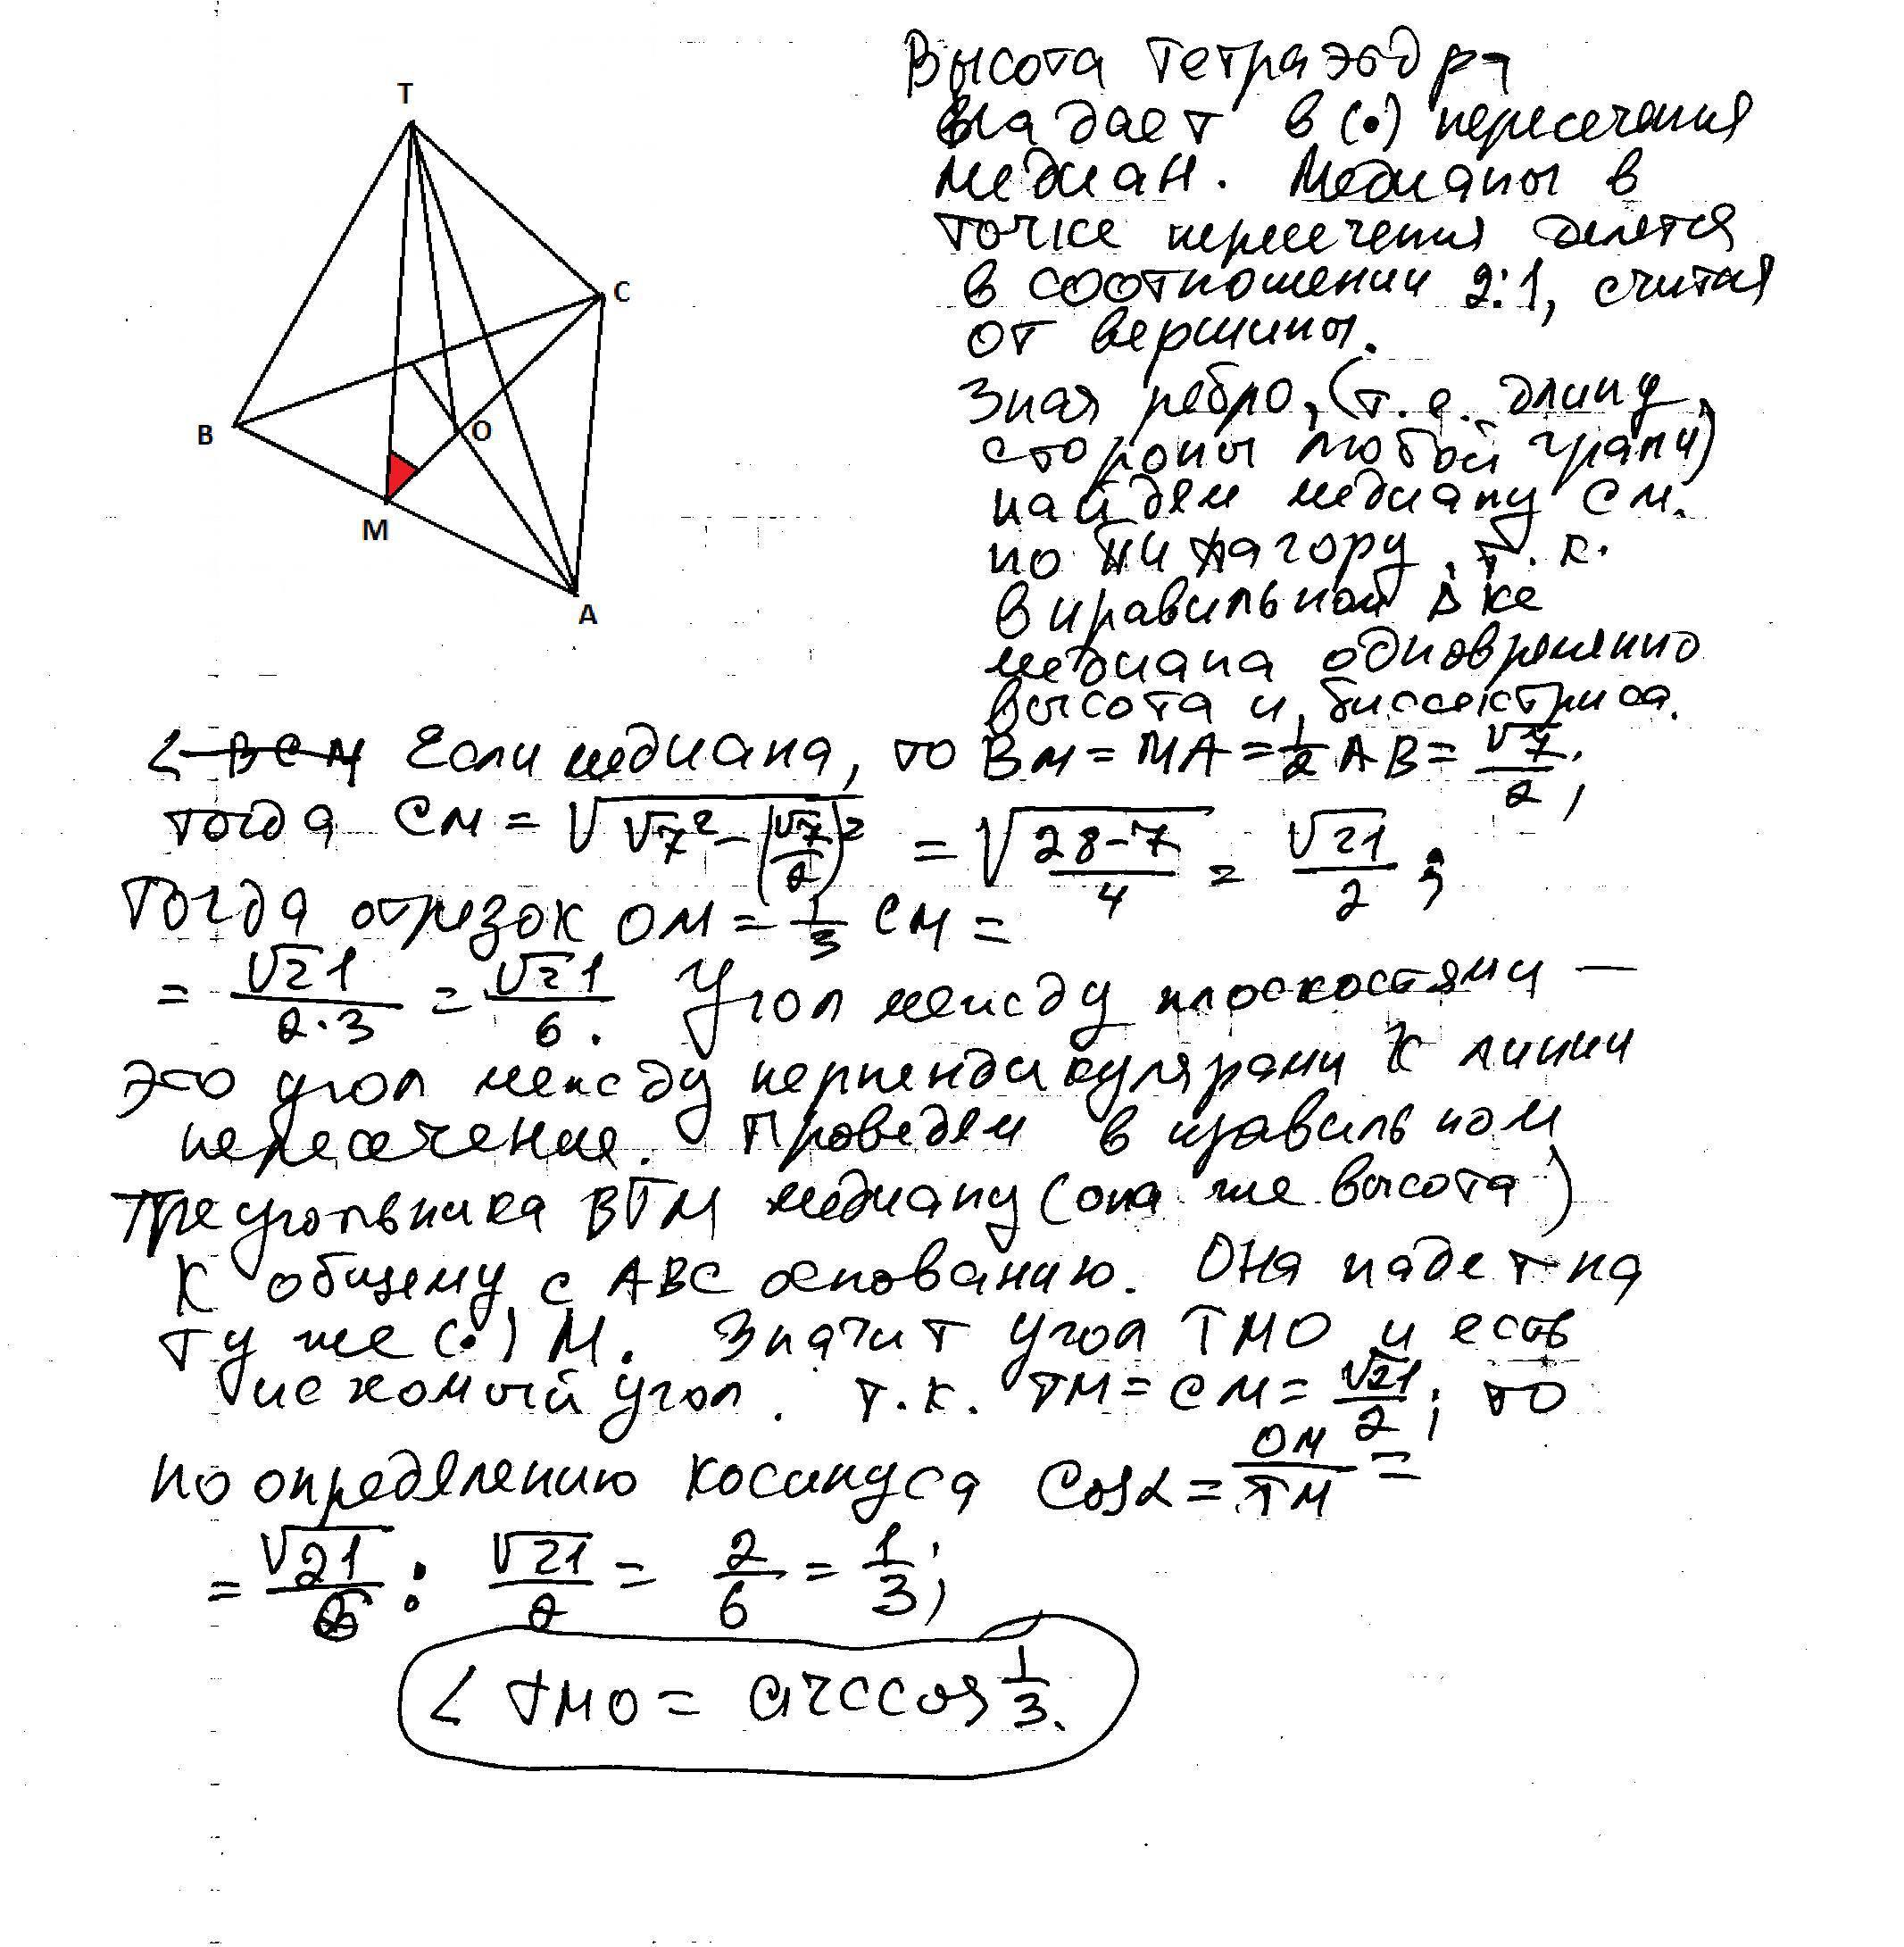 T
C
B
O
M
A
Высота тетраэдра
падает в (•) пересечения
медиан. Медианы в
точке пересечения делятся
в соотношении 2:1, считая
от вершины.
Зная ребро, (т.е. длину
стороны любой грани)
найдём медиану CM.
по Пифагору, т.к.
в правильном Δ-ке
медиана одновременно
высота и биссектриса.
∠ BCM Если медиана, то BM = MA = 1/2 AB = √7/2;
тогда CM = √(√7² - (√7/2)²) = √((28-7)/4) = √21/2;
Тогда отрезок OM = 1/3 CM =
= √21/(2·3) = √21/6. Угол между плоскостями —
это угол между перпендикулярами к линии
пересечение. Проведём в правильном
треугольника BTM медиану (она же высота)
к общему с ABC основанию. Она падет на
ту же (•) M. Значит угол TMO и есть
искомый угол. т.к. TM = CM = √21/2; то
по определению косинуса cosα = OM/TM =
= √21/6 : √21/2 = 2/6 = 1/3;
∠ TMO = arccos 1/3.